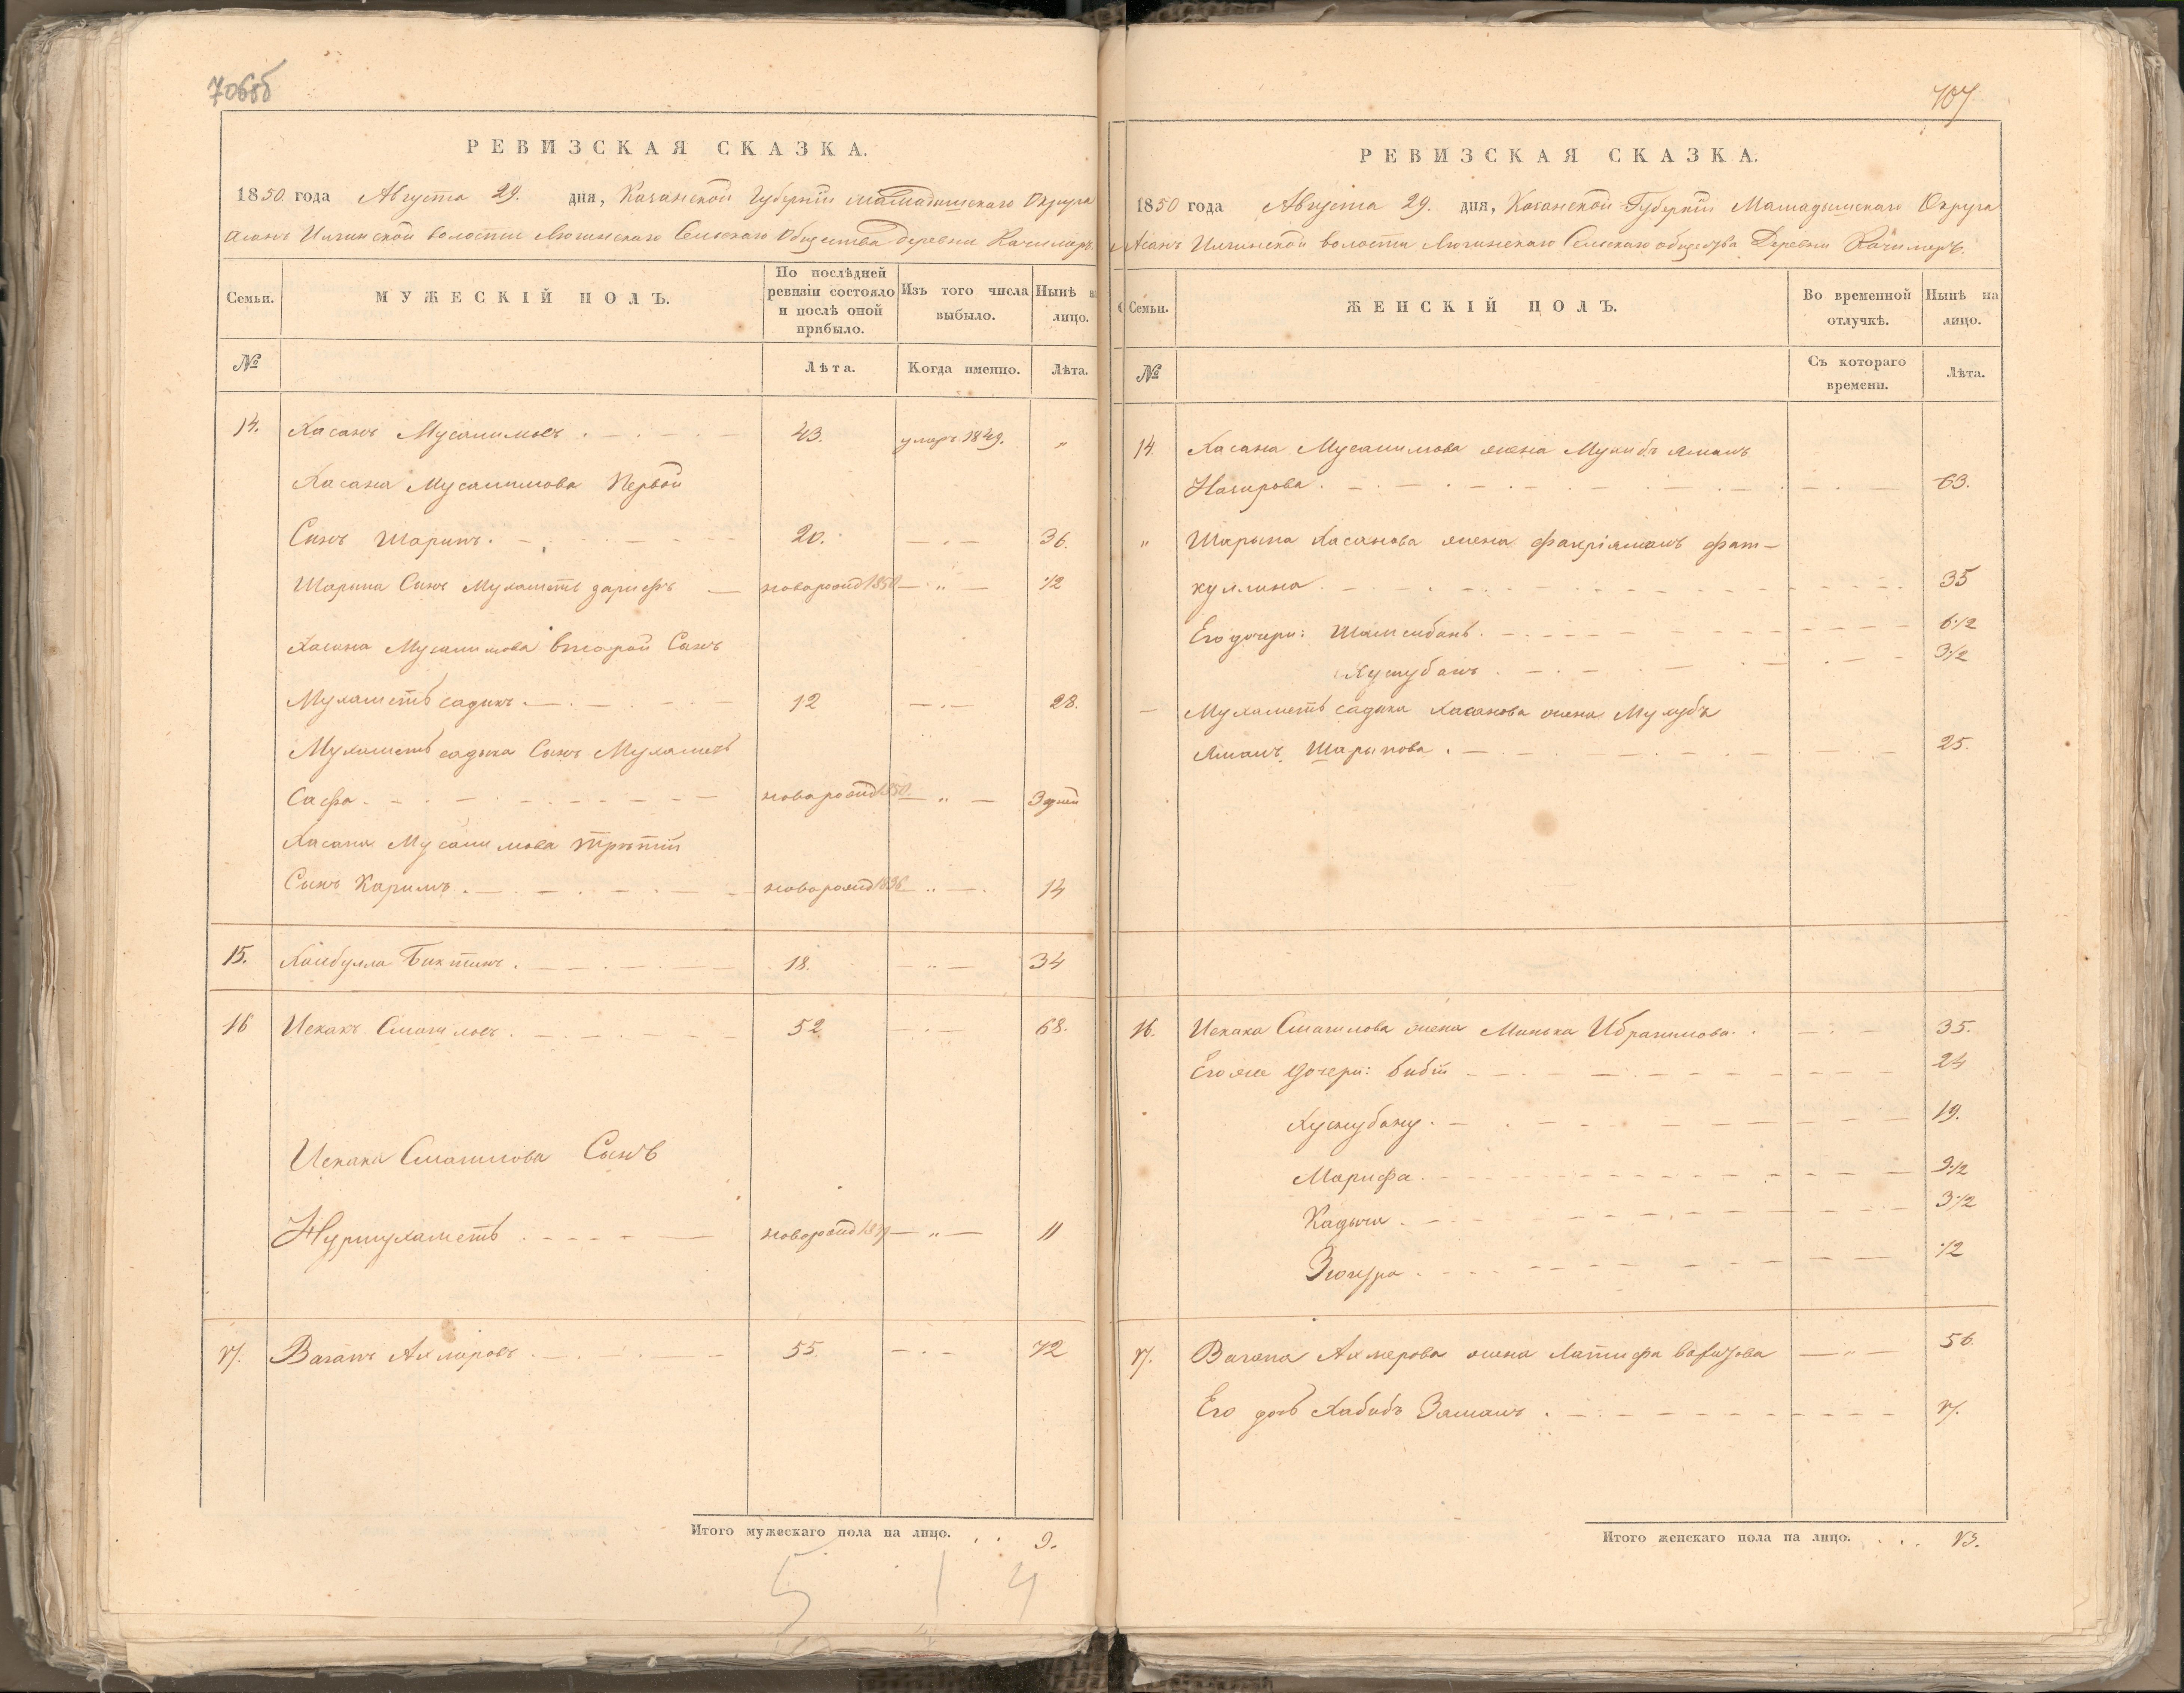 706об
РЕВИЗСКАЯ СКАЗКА.
1850 года Августа 29. дня, Казанской Губернiи Мамадышскаго Округа
Асанъ Илгинской волости Лючинскаго Сельскаго Общества Деревни Качимеръ.
Семьи.
МУЖЕСКІЙ ПОЛЪ.
По послѣдней ревизіи состояло и послѣ оной прибыло.
Изъ того числа выбыло.
Нынѣ на лицо.
№
Лѣта.
Когда именно.
Лѣта.
14. Хасанъ Мусалимовъ . 43. умеръ 1849. „
Хасана Мусалимова Первой
Сынъ Шарипъ . 20. 36.
Шарыпа Сынъ Мухаметь зарифъ новорожд 1850 „ 1/2
Хасана Мусалимова второй Сынъ
Мухаметь садыкъ . 12 28.
Мухаметь садыка Сынъ Мухаметь
Сафа . новорожд 1850. „ 3 дней
Хасана Мусалимова третiй
Сынъ Каримъ . новорожд 1836 „ 14
15. Хайбулла Биктинъ . 18. „ 34
16 Искакъ Смагиловъ . 52 68.
Искака Смагилова Сынъ
Нурмухаметь . новорожд 1839 „ 11
17. Вагапъ Ахмеровъ . 55. 72
Итого мужескаго пола на лицо. . . 9.
5 1 4
707
РЕВИЗСКАЯ СКАЗКА.
1850 года Августа 29. дня, Казанской Губернiи Мамадышскаго Округа
Асанъ Илгинской волости Лючинскаго Сельскаго общества Деревни Качимеръ.
Семьи.
ЖЕНСКІЙ ПОЛЪ.
Во временной отлучкѣ.
Нынѣ на лицо.
№
Съ котораго времени.
Лѣта.
14. Хасана Мусалимова жена Мукибъ ямалъ
Нагирова . 63.
„ Шарыпа Хасанова жена Фахрiямалъ Фат-
куллина . 35
Его дочери: Шамсибанъ . 6 1/2
Хузнубанъ . 3 1/2
Мухаметь садыка Хасанова жена Мухубъ
Ямалъ Шарыпова . 25.
16. Искака Смагилова жена Минька Ибрагимова . 35.
Его же Дочери: Бибiи 24
Хузнубану . 19.
Марифа . 9 1/2
Кадыча . 3 1/2
Зюгура . 1/2
17. Вагапа Ахмерова жена Латифа Вафизова „ 56.
Его дочь Хабибъ Замалъ . 17.
Итого женскаго пола на лицо. . . . 13.